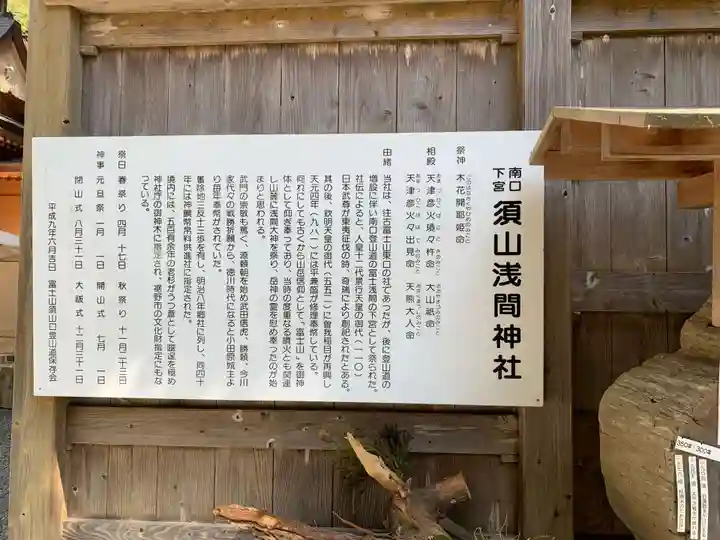 南口
下宮
須山浅間神社
祭神 木花開耶姫命
相殿 天津彦火瓊々杵命 大山祇命
天津彦火々出見命 天熊大人命
由緒 当社は、往古富士山東口の社であったが、後に登山道の
増設に伴い南口登山道の富士浅間の下宮として祭られた。
社伝によると、人皇十二代景行天皇の御代(一一〇)
日本武尊が東夷征伐の時、奇瑞により創祀されたとある。
其の後、欽明天皇の御代(五五二)に曽我稲目が再興し
天元四年(九八一)には平兼盛が修理奉幣している。
何れにしても古くから山岳信仰として「富士山」を御神
体として仰ぎ奉っており、当時の度重なる噴火とも関連
し山麓に浅間大神を祭り、岳神の霊を慰め奉ったのが始
まりと思われる。
武門の崇敬も篤く、源頼朝を始め武田信虎、勝頼、今川
家代々の戦勝祈願から、徳川時代になると小田原城主よ
り毎年奉幣がされていた。
蠲除地三反十三歩を有し、明治八年郷社に列し、同四十
年には神饌幣帛料供進社に指定された。
境内には、五百有余年の老杉がうつ蒼として幽邃を極め
神社庁の御神木に指定され、裾野市の文化財指定にもな
っている。
祭日 春祭り 四月 十七日 秋祭り 十一月二十三日
神事 元旦祭 一月 一日 開山式 七月 一日
閉山式 八月三十一日 大祓式 十二月三十一日
平成九年六月吉日 富士山須山口登山道保存会